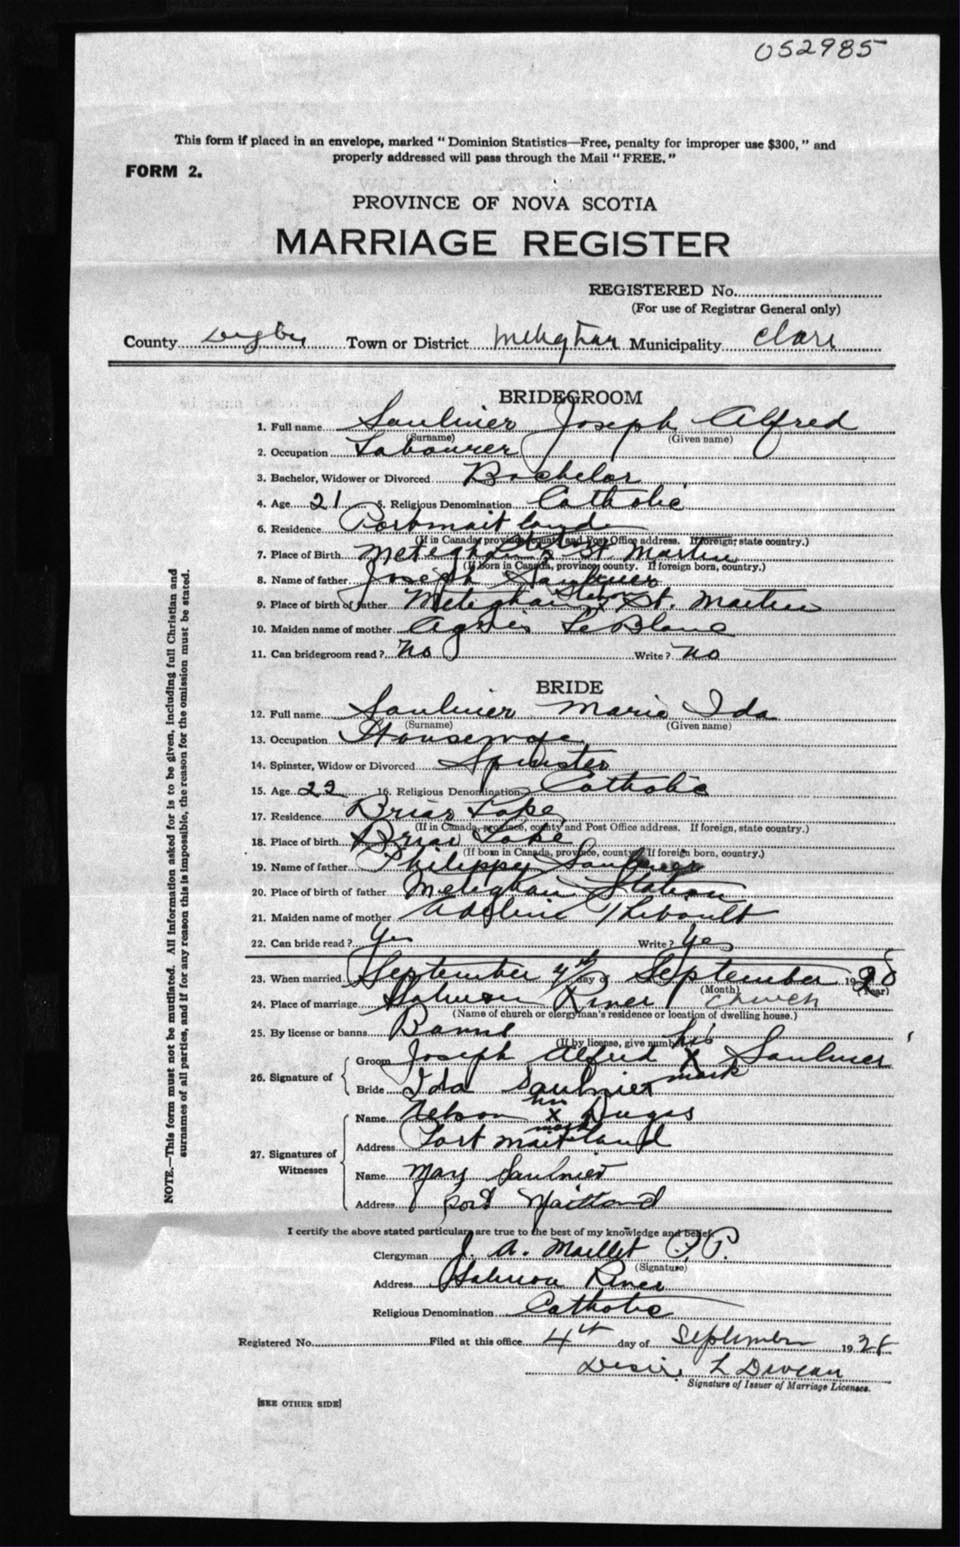 052985
This form if placed in an envelope, marked "Dominion Statistics—Free, penalty for improper use $300," and
properly addressed will pass through the Mail "FREE."
FORM 2.
PROVINCE OF NOVA SCOTIA
MARRIAGE REGISTER
REGISTERED No.
(For use of Registrar General only)
County Digby Town or District Meteghan Municipality Clare
BRIDEGROOM
1. Full name Saulnier Joseph Alfred
(Surname) (Given name)
2. Occupation Labourer
3. Bachelor, Widower or Divorced Bachelor
4. Age 21 5. Religious Denomination Catholic
6. Residence Port maitland
(If in Canada, province, county and Post Office address. If foreign, state country.)
7. Place of Birth Meteghan St Martin
(If born in Canada, province, county. If foreign born, country.)
8. Name of father Joseph Saulnier
9. Place of birth of father Meteghan Station St. Martin
10. Maiden name of mother Agnes Le Blanc
11. Can bridegroom read? No Write? no
BRIDE
12. Full name Saulnier Marie Ida
(Surname) (Given name)
13. Occupation Housewife
14. Spinster, Widow or Divorced Spinster
15. Age 22 16. Religious Denomination Catholic
17. Residence Briar Lake
(If in Canada, province, county and Post Office address. If foreign, state country.)
18. Place of birth Briar Lake
(If born in Canada, province, county. If foreign born, country.)
19. Name of father Philippe Saulnier
20. Place of birth of father Meteghan Station
21. Maiden name of mother Adeline Thibault
22. Can bride read? Yes Write? Yes
23. When married September 4th day of September 1928
(Month) (Year)
24. Place of marriage Salmon River Church
(Name of church or clergyman's residence or location of dwelling house.)
25. By license or banns Banns
(If by license, give number)
26. Signature of
Groom Joseph Alfred his X mark Saulnier
Bride Ida Saulnier
27. Signatures of Witnesses
Name Nelson his X mark Dugas
Address Port maitland
Name May Saulnier
Address Port Maitland
I certify the above stated particulars are true to the best of my knowledge and belief.
Clergyman J. A. Maillet P.P.
(Signature)
Address Salmon River
Religious Denomination Catholic
Registered No. Filed at this office 4th day of September 1928
Desire L Deveau
Signature of Issuer of Marriage Licenses.
[SEE OTHER SIDE]
NOTE.—This form must not be mutilated. All information asked for is to be given, including full Christian and
surnames of all parties, and if for any reason this is impossible, the reason for the omission must be stated.